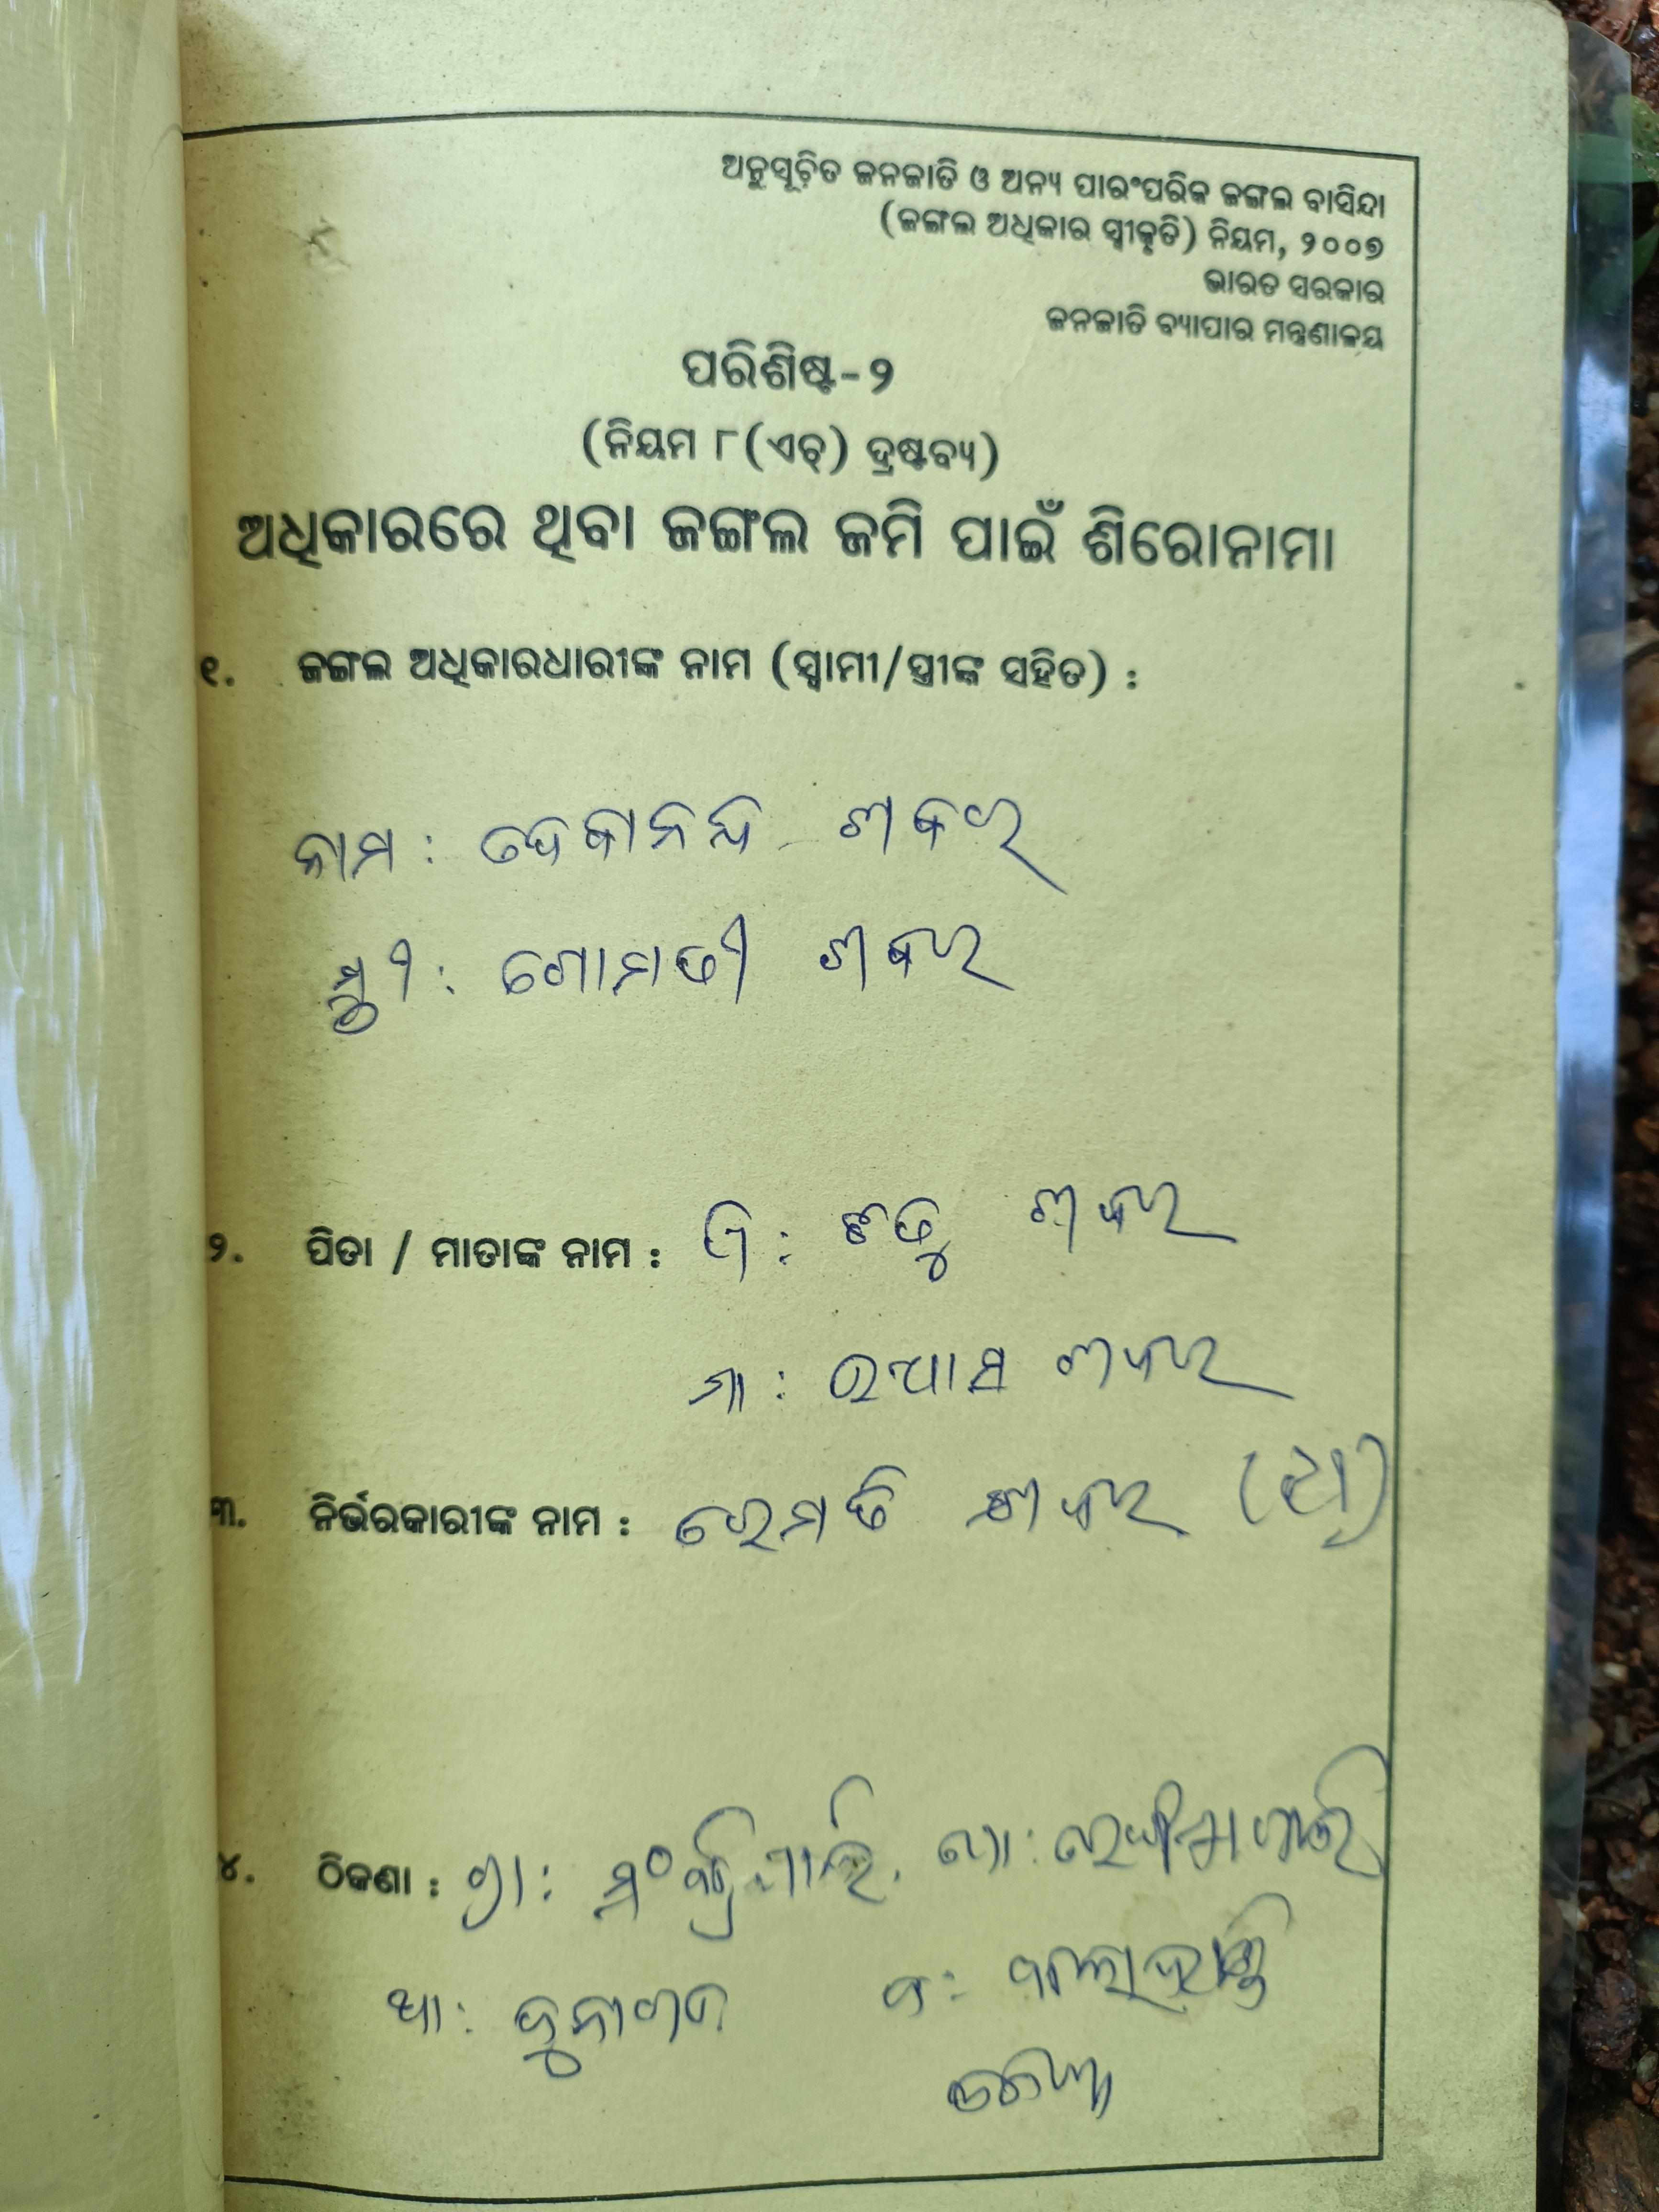 ଅନୁସୂଚିତ ଜନଜାତି ଓ ଅନ୍ୟ ପାରଂପରିକ ଜଙ୍ଗଲ ବାସିନ୍ଦା
(ଜଙ୍ଗଲ ଅଧିକାର ସ୍ୱୀକୃତି) ନିୟମ, ୨୦୦୭
ଭାରତ ସରକାର
ଜନଜାତି ବ୍ୟାପାର ମନ୍ତ୍ରଣାଳୟ
ପରିଶିଷ୍ଟ-୨
(ନିୟମ ୮(ଏଚ୍) ଦ୍ରଷ୍ଟବ୍ୟ)
ଅଧିକାରରେ ଥିବା ଜଙ୍ଗଲ ଜମି ପାଇଁ ଶିରୋନାମା
୧. ଜଙ୍ଗଲ ଅଧିକାରଧାରୀଙ୍କ ନାମ (ସ୍ୱାମୀ/ସ୍ତ୍ରୀଙ୍କ ସହିତ) :
ନାମ : ଦେବାନନ୍ଦ ଶବର
ସ୍ତ୍ରୀ : ଗୋମତୀ ଶବର
୨. ପିତା / ମାତାଙ୍କ ନାମ : ପି : ଶବର
ମା : ଶବର
୩. ନିର୍ଭରକାରୀଙ୍କ ନାମ : ହେମତି ଶବର
୪. ଠିକଣା : ଗ୍ରା :
ଥା : ଜୁନାଗଡ